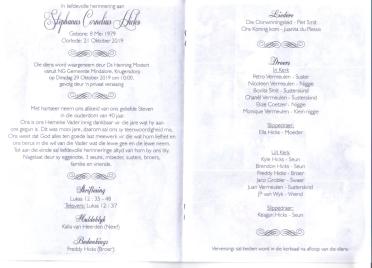 In liefdevolle herinnering aan
Stephanus Cornelius Hicks
Gebore: 8 Mei 1979
Oorlede: 21 Oktober 2019
Die diens word waargeneem deur Ds Henning Mostert
vanuit NG Gemeente Mindalore, Krugersdorp
op Dinsdag 29 Oktober 2019 om 10:00,
gevolg deur 'n privaat verassing
Met hartseer neem ons afskeid van ons geliefde Steven
in die ouderdom van 40 jaar.
Ons is ons Hemelse Vader innig dankbaar vir die jare wat hy aan
ons gegun is. Dit was mooi jare, daarom sal ons sy teenwoordigheid mis.
Ons weet dat God alles ten goede laat meewerk vir die wat hom liefhet en
ons berus in die wil van die Vader wat die lewe gee en die lewe neem.
Tot aan die einde sal liefdevolle herinneringe altyd van hom by ons bly.
Nagelaat deur sy eggenote, 3 seuns, moeder, susters, broers,
familie en vriende.
Skriflesing
Lukas 12 : 35 - 48
Teksvers: Lukas 12 : 37
Huldeblyk
Kallie van Heerden (Neef)
Bedankings
Freddy Hicks (Broer)
Liedere
Die Oorwinningslied - Piet Smit
Ons Koning kom - Juanita du Plessis
Draers
In Kerk
Petro Vermeulen - Suster
Nicoleen Vermeulen - Niggie
Bonita Smit - Susterskind
Chanél Vermeulen - Susterskind
Elize Coetzer - Niggie
Monique Vermeulen - Susterskind
Slippedraer:
Ella Hicks - Moeder
Uit Kerk
Kyle Hicks - Seun
Brendon Hicks - Seun
Freddy Hicks - Broer
Jano Grobler - Swaer
Juan Vermeulen - Susterskind
JP van Wyk - Vriend
Slippedraer:
Keagan Hicks - Seun
Verversings sal bedien word in die kerksaal na afloop van die diens.